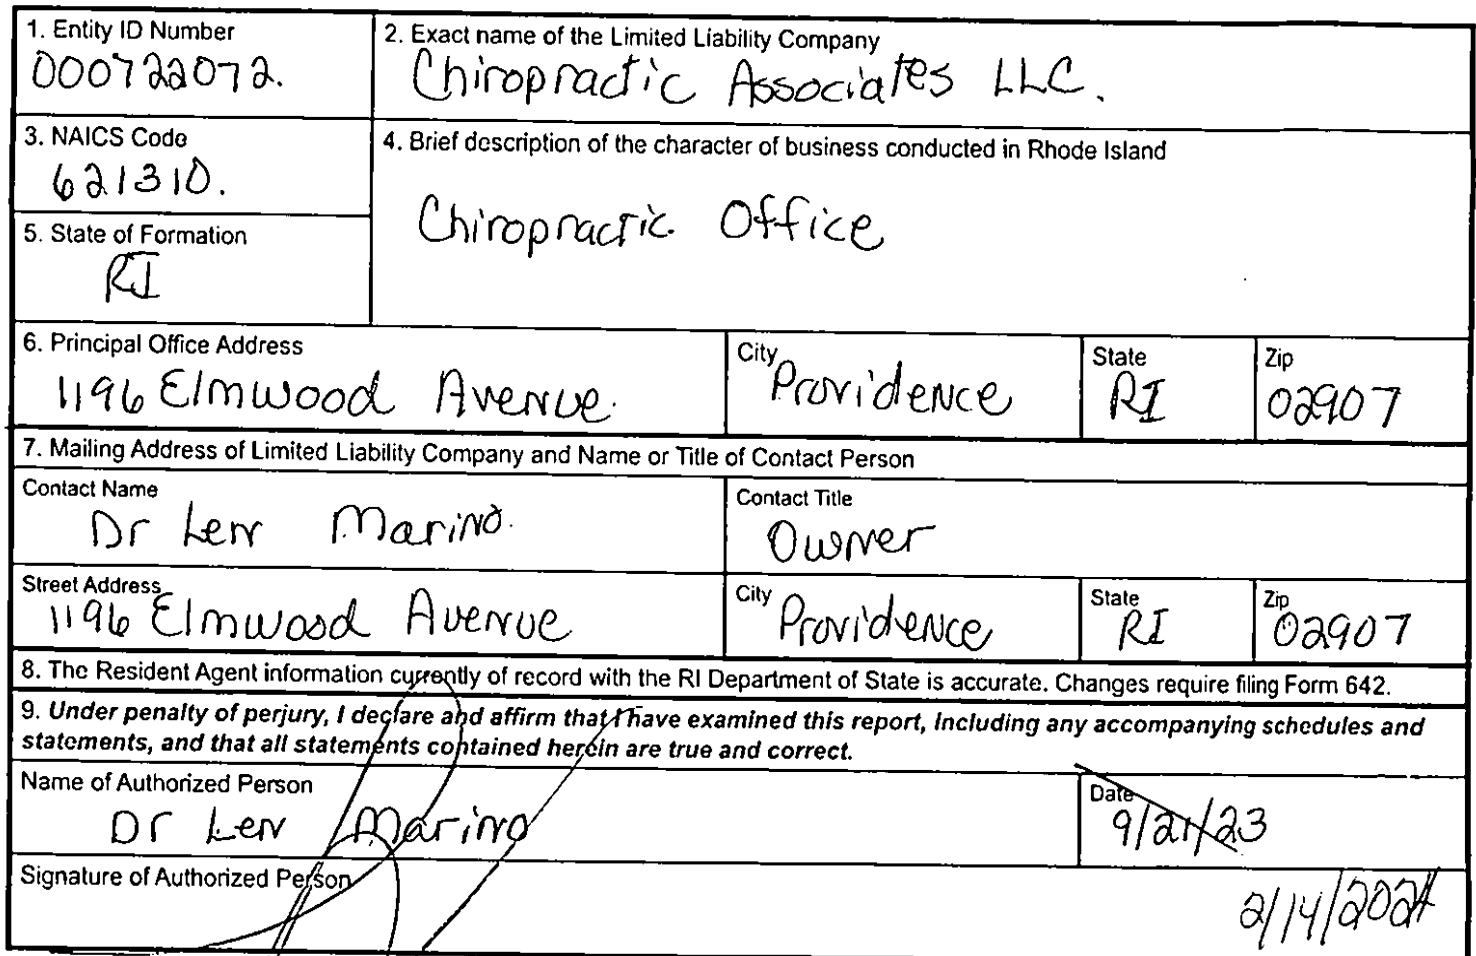 1. Entity ID Number
000722072.
2. Exact name of the Limited Liability Company
Chiropractic Associates LLC.
3. NAICS Code
621310.
4. Brief description of the character of business conducted in Rhode Island
Chiropractic Office
5. State of Formation
RI
6. Principal Office Address
1196 Elmwood Avenue.
City
Providence
State
RI
Zip
02907
7. Mailing Address of Limited Liability Company and Name or Title of Contact Person
Contact Name
Dr Len Marino.
Contact Title
Owner
Street Address
1196 Elmwood Avenue
City
Providence
State
RI
Zip
02907
8. The Resident Agent information currently of record with the RI Department of State is accurate. Changes require filing Form 642.
9. Under penalty of perjury, I declare and affirm that I have examined this report, including any accompanying schedules and
statements, and that all statements contained herein are true and correct.
Name of Authorized Person
Dr Len Marino
Date
9/21/23
Signature of Authorized Person
2/14/2024